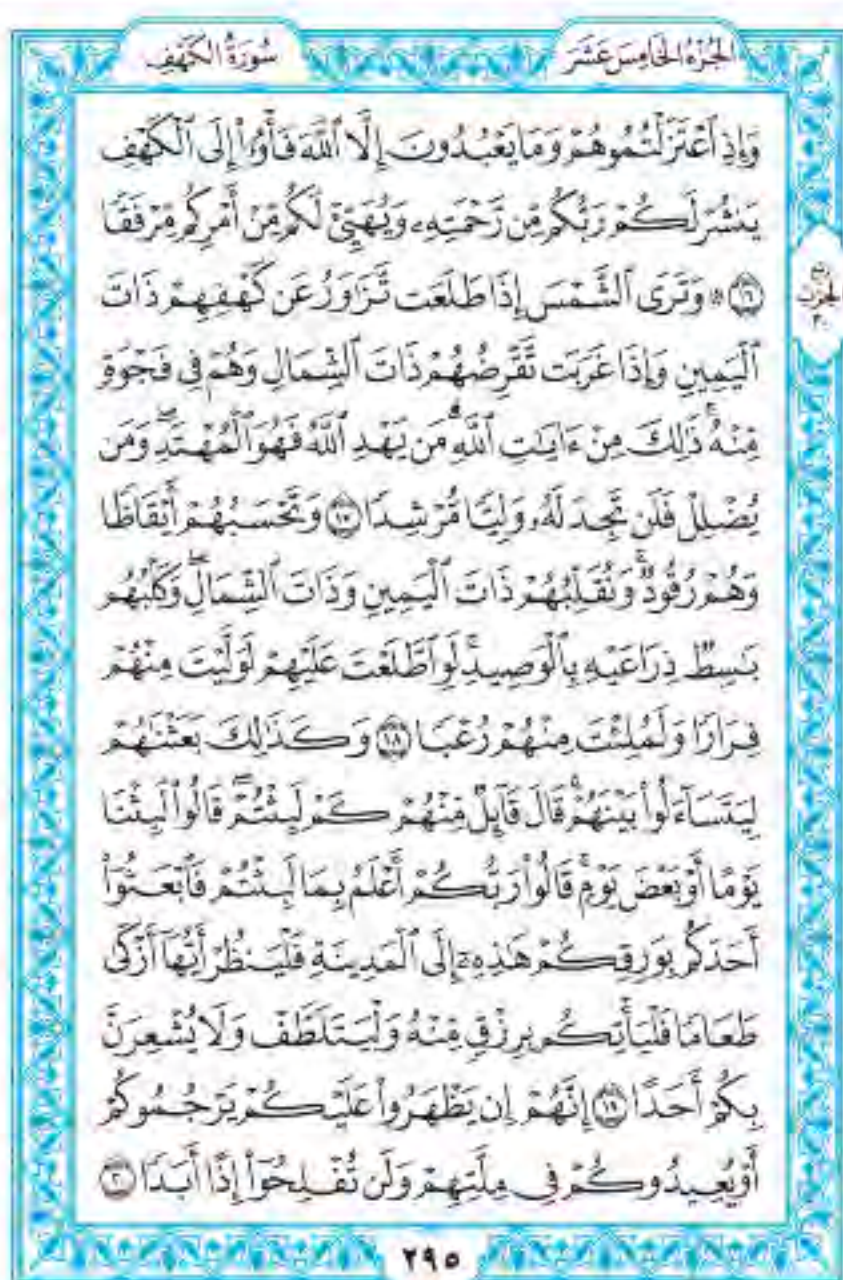 الجُزْءُ الخَامِسَ عَشَرَ
سُورَةُ الكَهْفِ
وَإِذِ ٱعْتَزَلْتُمُوهُمْ وَمَا يَعْبُدُونَ إِلَّا ٱللَّهَ فَأْوُۥٓا۟ إِلَى ٱلْكَهْفِ
يَنشُرْ لَكُمْ رَبُّكُم مِّن رَّحْمَتِهِۦ وَيُهَيِّئْ لَكُم مِّنْ أَمْرِكُم مِّرْفَقًا
ربع
الحزب
٣٠
۝١٦ ۞ وَتَرَى ٱلشَّمْسَ إِذَا طَلَعَت تَّزَٰوَرُ عَن كَهْفِهِمْ ذَاتَ
ٱلْيَمِينِ وَإِذَا غَرَبَت تَّقْرِضُهُمْ ذَاتَ ٱلشِّمَالِ وَهُمْ فِى فَجْوَةٍ
مِّنْهُ ۚ ذَٰلِكَ مِنْ ءَايَٰتِ ٱللَّهِ ۗ مَن يَهْدِ ٱللَّهُ فَهُوَ ٱلْمُهْتَدِ ۖ وَمَن
يُضْلِلْ فَلَن تَجِدَ لَهُۥ وَلِيًّا مُّرْشِدًا ۝١٧ وَتَحْسَبُهُمْ أَيْقَاظًا
وَهُمْ رُقُودٌ ۚ وَنُقَلِّبُهُمْ ذَاتَ ٱلْيَمِينِ وَذَاتَ ٱلشِّمَالِ ۖ وَكَلْبُهُم
بَٰسِطٌ ذِرَاعَيْهِ بِٱلْوَصِيدِ ۚ لَوِ ٱطَّلَعْتَ عَلَيْهِمْ لَوَلَّيْتَ مِنْهُمْ
فِرَارًا وَلَمُلِئْتَ مِنْهُمْ رُعْبًا ۝١٨ وَكَذَٰلِكَ بَعَثْنَٰهُمْ
لِيَتَسَآءَلُوا۟ بَيْنَهُمْ ۚ قَالَ قَآئِلٌ مِّنْهُمْ كَمْ لَبِثْتُمْ ۖ قَالُوا۟ لَبِثْنَا
يَوْمًا أَوْ بَعْضَ يَوْمٍ ۚ قَالُوا۟ رَبُّكُمْ أَعْلَمُ بِمَا لَبِثْتُمْ فَٱبْعَثُوٓا۟
أَحَدَكُم بِوَرِقِكُمْ هَٰذِهِۦٓ إِلَى ٱلْمَدِينَةِ فَلْيَنظُرْ أَيُّهَآ أَزْكَىٰ
طَعَامًا فَلْيَأْتِكُم بِرِزْقٍ مِّنْهُ وَلْيَتَلَطَّفْ وَلَا يُشْعِرَنَّ
بِكُمْ أَحَدًا ۝١٩ إِنَّهُمْ إِن يَظْهَرُوا۟ عَلَيْكُمْ يَرْجُمُوكُمْ
أَوْ يُعِيدُوكُمْ فِى مِلَّتِهِمْ وَلَن تُفْلِحُوٓا۟ إِذًا أَبَدًا ۝٢٠
٢٩٥